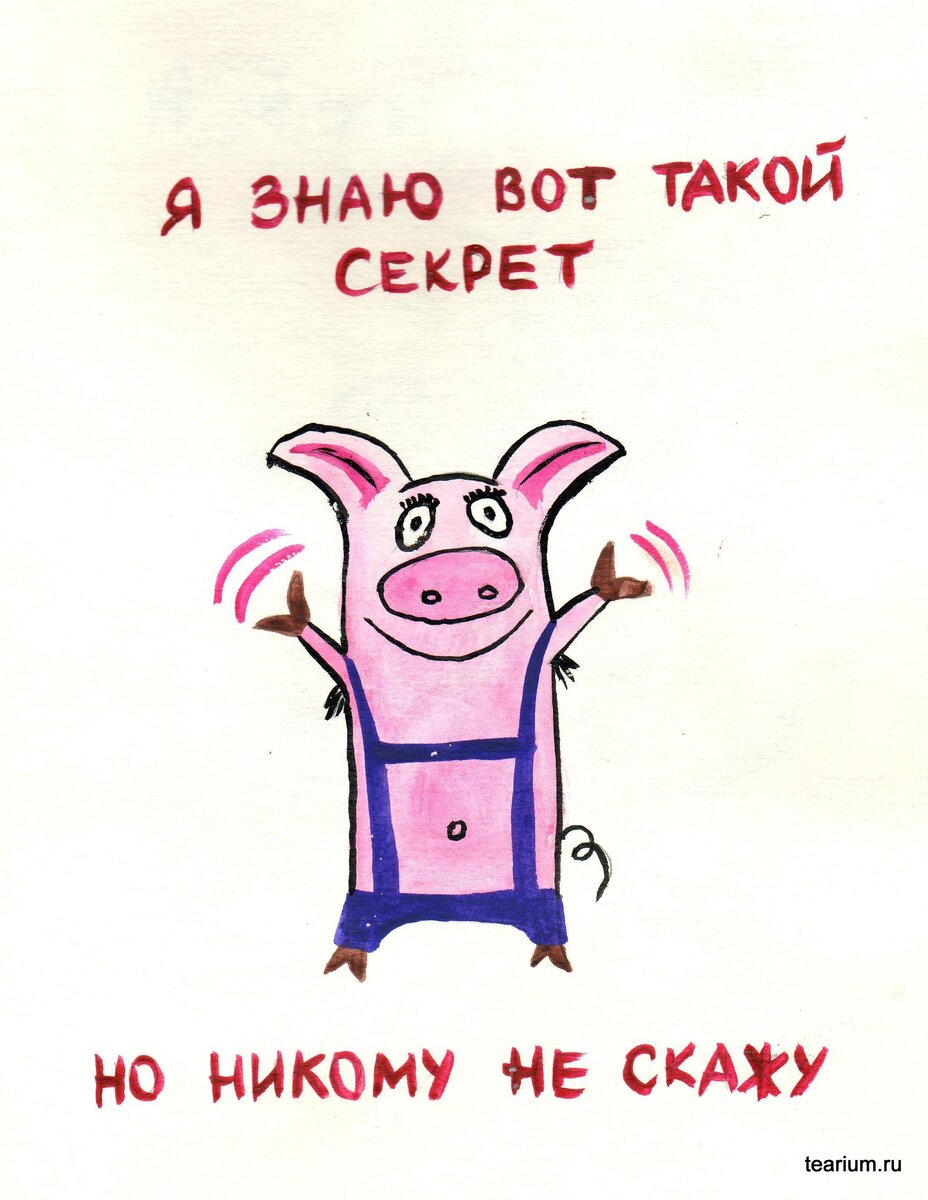 Я ЗНАЮ ВОТ ТАКОЙ
СЕКРЕТ
НО НИКОМУ НЕ СКАЖУ
tearium.ru